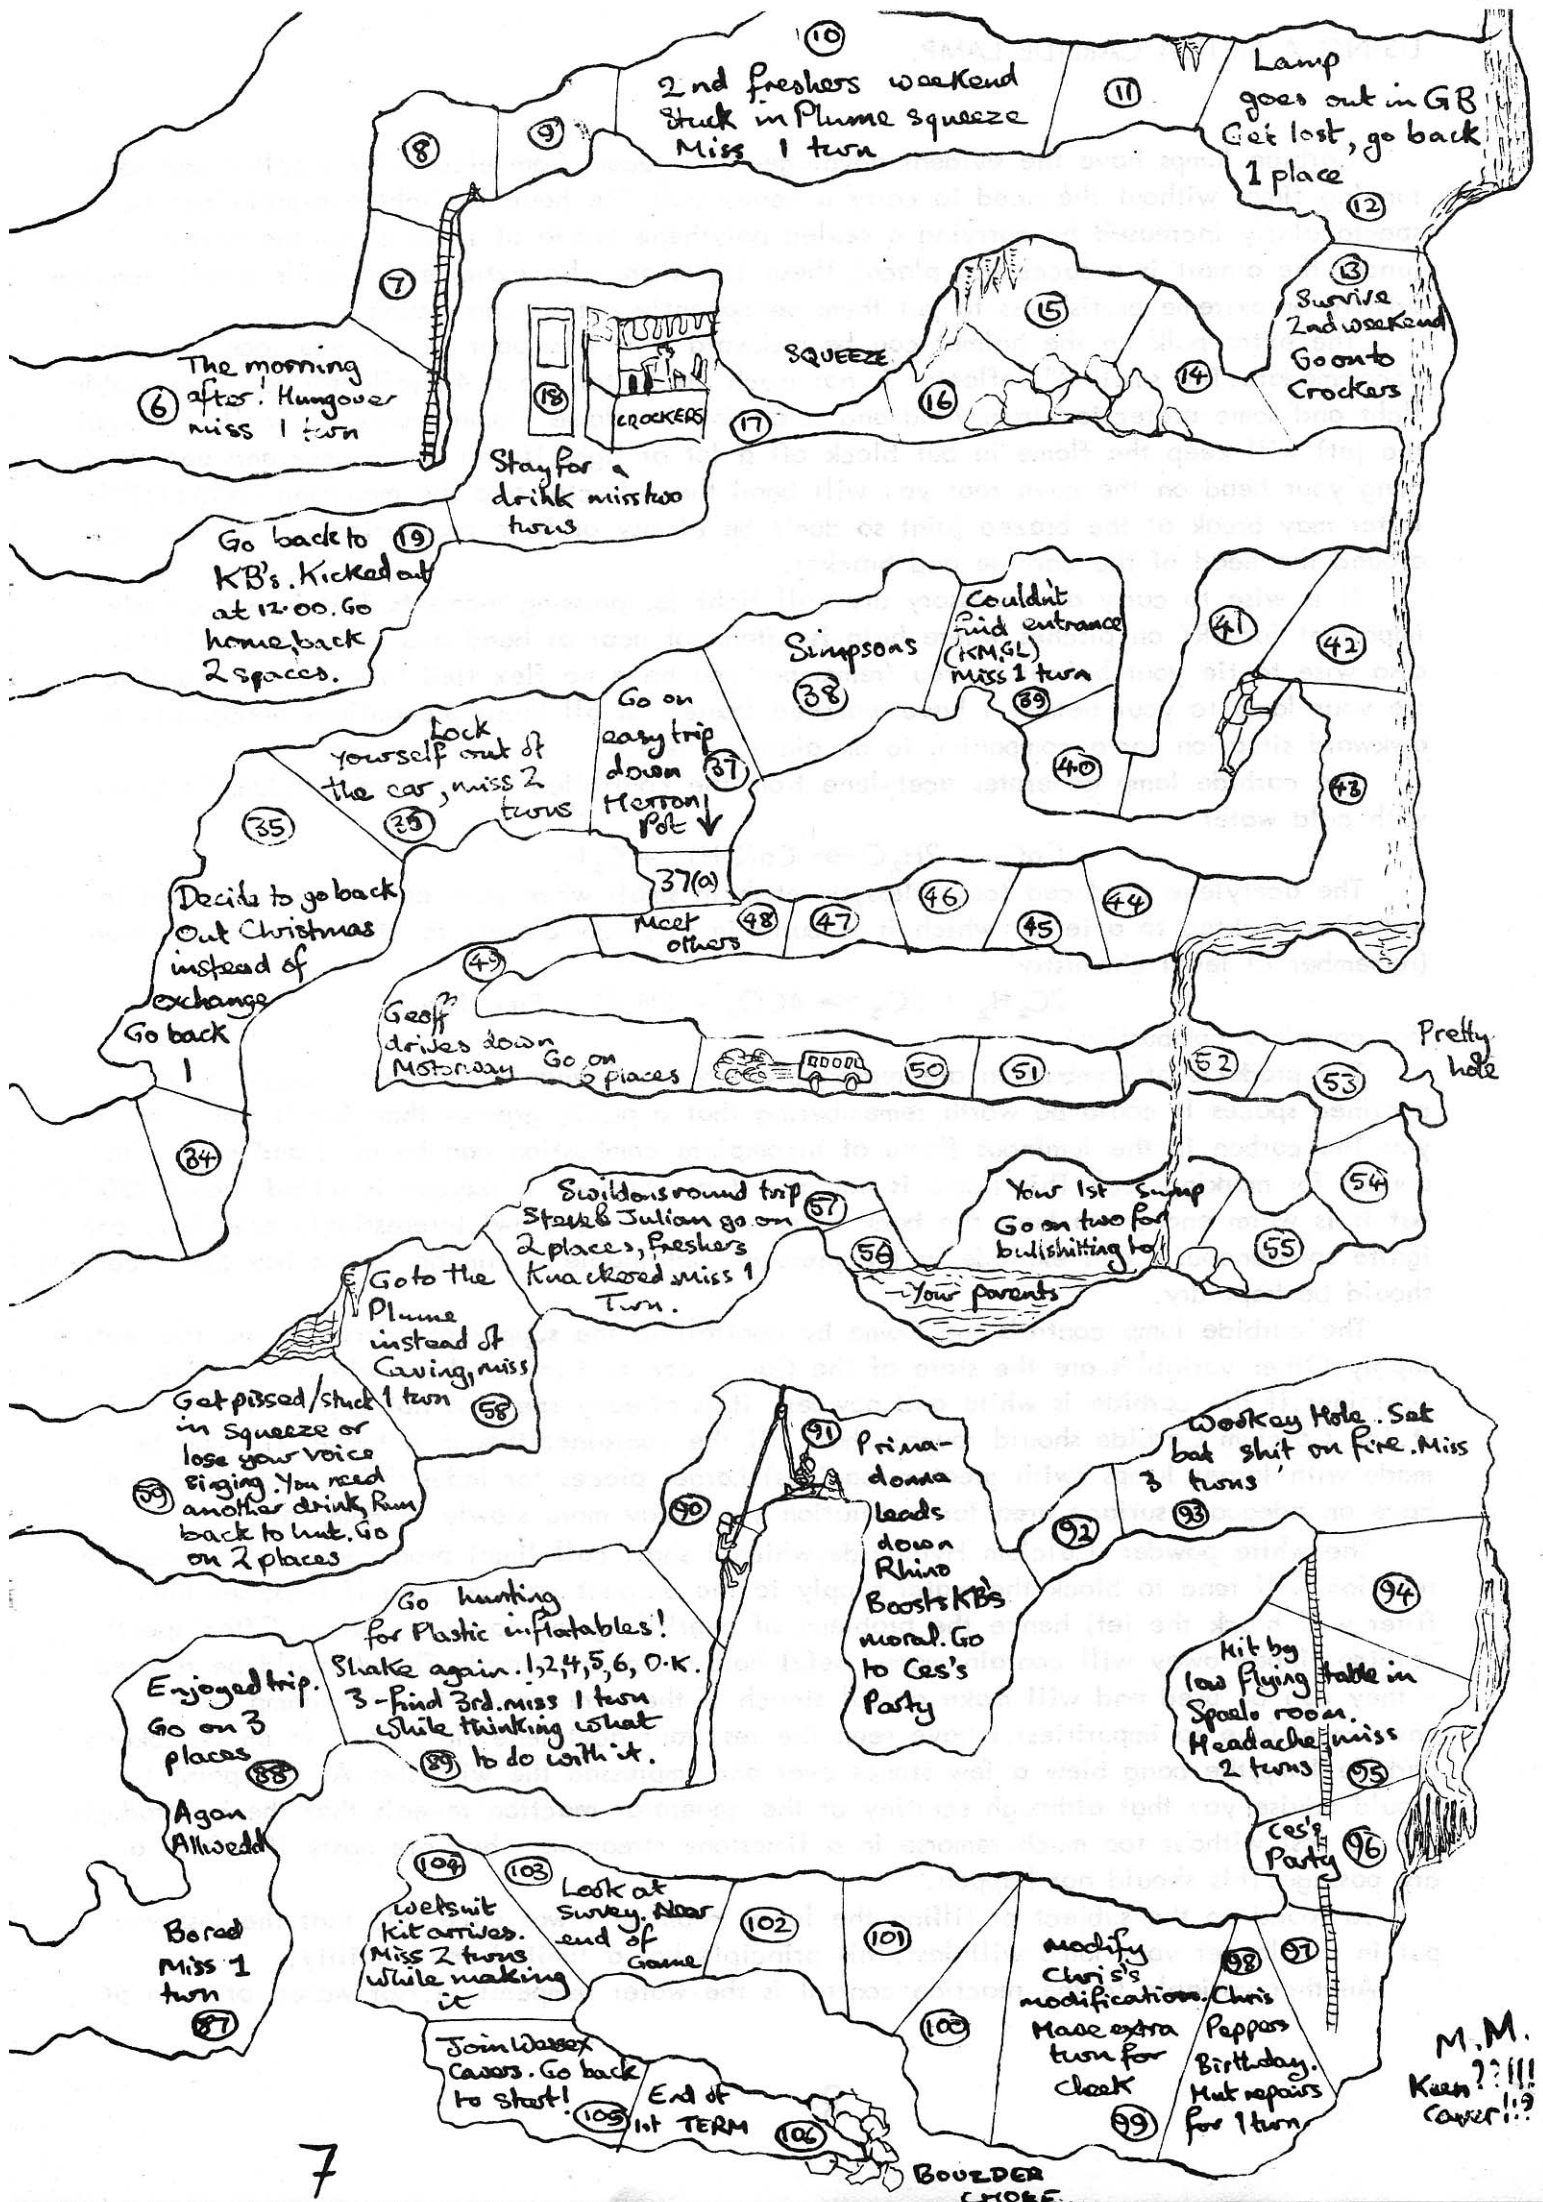 10
2nd freshers weekend
Stuck in Plume squeeze
Miss 1 turn
8
9
11
Lamp
goes out in GB
Get lost, go back
1 place
12
7
13
Survive
2nd weekend
Go on to
Crockers
The morning
after! Hungover
miss 1 turn
6
18
CROCKERS
17
SQUEEZE
16
15
14
Stay for a
drink miss two
turns
Go back to
KB's. Kicked out
at 12.00. Go
home, back
2 spaces.
19
Simpsons
38
Couldn't
find entrance
(KM, GL)
miss 1 turn
39
40
41
42
43
Lock
yourself out of
the car, miss 2
turns
35
Go on
easy trip
down
Herron
Pot
37
37(a)
35
Decide to go back
Out Christmas
instead of
exchange
Go back
1
34
Meet
others
48
47
46
45
44
49
Geoff
drives down
Motorway
Go on
6 places
50
51
52
53
Pretty
hole
54
55
Your 1st sump
Go on two for
bullshitting to
Your parents
56
57
Swildons round trip
Steve & Julian go on
2 places, freshers
Knackered miss 1
Turn.
Go to the
Plume
instead of
Caving, miss
1 turn
58
Get pissed/stuck
in squeeze or
lose your voice
singing. You need
another drink, Run
back to hut. Go
on 2 places
59
90
91
Prima-
donna
leads
down
Rhino
Boosts KB's
moral. Go
to Ces's
Party
92
Wookey Hole. Set
bat shit on fire. Miss
3 turns
93
94
Hit by
low flying table in
Spaelo room.
Headache, miss
2 turns
95
Ces's
Party
96
Go hunting
for Plastic inflatables!
Shake again. 1,2,4,5,6, O.K.
3-find 3rd. miss 1 turn
while thinking what
to do with it.
89
Enjoyed trip.
Go on 3
places
88
Agan
Allwedd
Bored
Miss 1
turn
87
104
Wetsuit
kit arrives.
Miss 2 turns
while making
it
103
Look at
Survey. Near
end of
Game
102
101
100
Modify
Chris's
modification.
Have extra
turn for
cheek
99
98
Chris
Peppers
Birthday.
Hut repairs
for 1 turn
97
Join Wessex
Cavers. Go back
to start!
105
End of
1st TERM
106
BOULDER
CHOKE
M.M.
Keen??!!!
Caver!!?
7